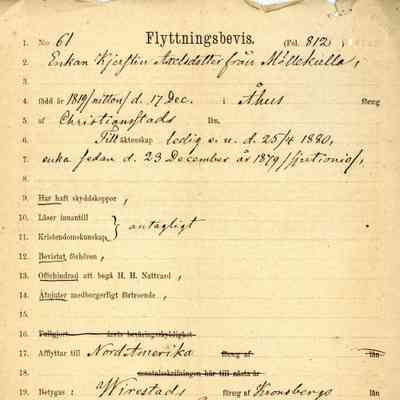 Flyttningsbevis.
1. No 61 (Fol. 812)
2. Enkan Kjerstin Axelsdotter från Möllekulla,
3.
4. född år 1819/nitton/ d. 17 Dec. i Åhus förs:g
5. af Christianstads län.
6. Till äktenskap ledig e. u. d. 25/4 1880,
7. enka sedan d. 23 December år 1879/sjutionio/,
8.
9. Har haft skyddskoppor,
10. Läser innantill
} antagligt
11. Kristendomskunskap
12. Bevistat förhören,
13. Oförhindrad att begå H. H. Nattvard,
14. Åtnjuter medborgerligt förtroende,
15.
16. Fullgjort årets beväringsskyldighet
17. Afflyttar till Nord Amerika förs:g af län
18. mantalsskrifningen här till nästa år
19. Betygas: Wirestads förs:g af Kronobergs län